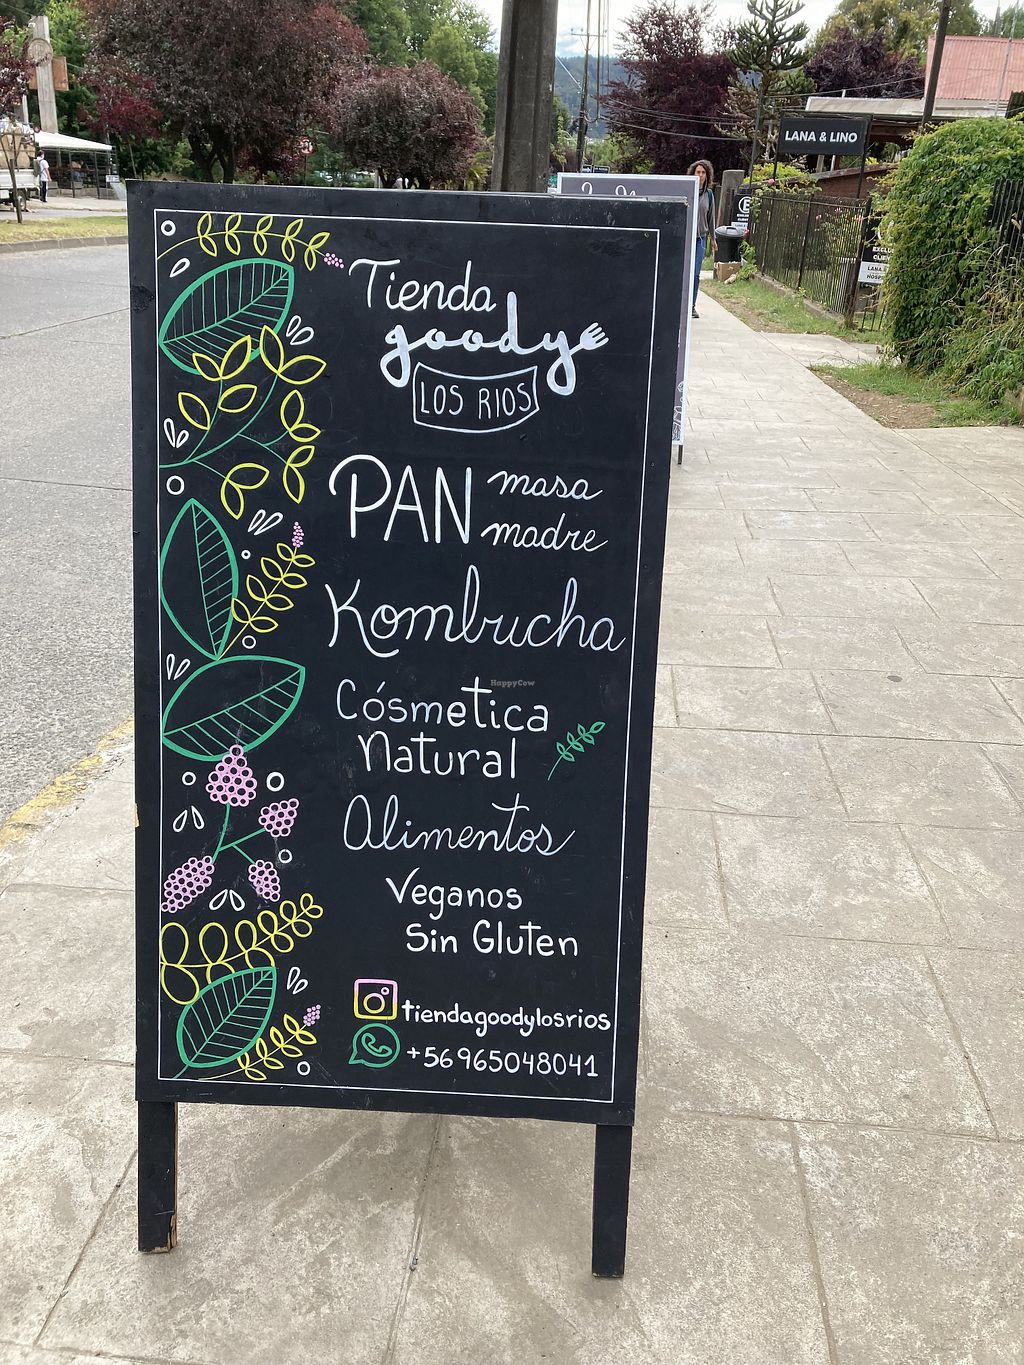 LANA & LINO
Tienda
goody
LOS RIOS
PAN masa
madre
Kombucha
HappyCow
Cósmetica
Natural
Alimentos
Veganos
Sin Gluten
tiendagoodylosrios
+56965048041